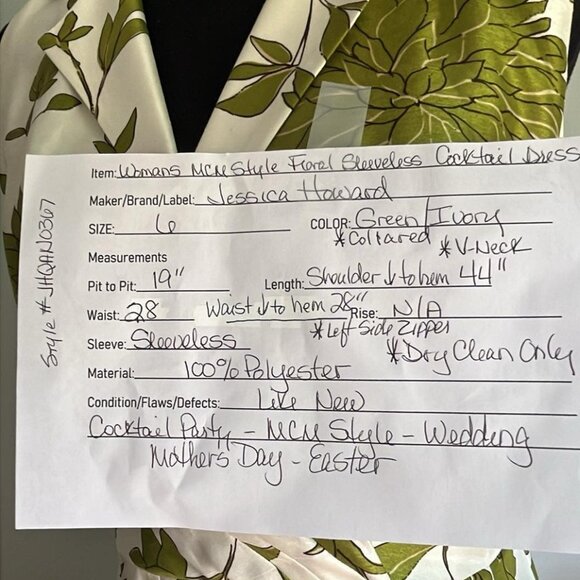 Item: Womans MCM Style Floral Sleeveless Cocktail Dress
Maker/Brand/Label: Jessica Howard
SIZE: 6 COLOR: Green/Ivory
*Collared *V-Neck
Measurements
Pit to Pit: 19" Length: Shoulder ↓ to hem 44"
Waist: 28 Waist ↓ to hem 28" Rise: N/A
*Left Side Zipper
Sleeve: Sleeveless *Dry Clean Only
Material: 100% Polyester
Condition/Flaws/Defects: Like New
Cocktail Party - MCM Style - Wedding
Mothers Day - Easter
Style # JHQAN0367